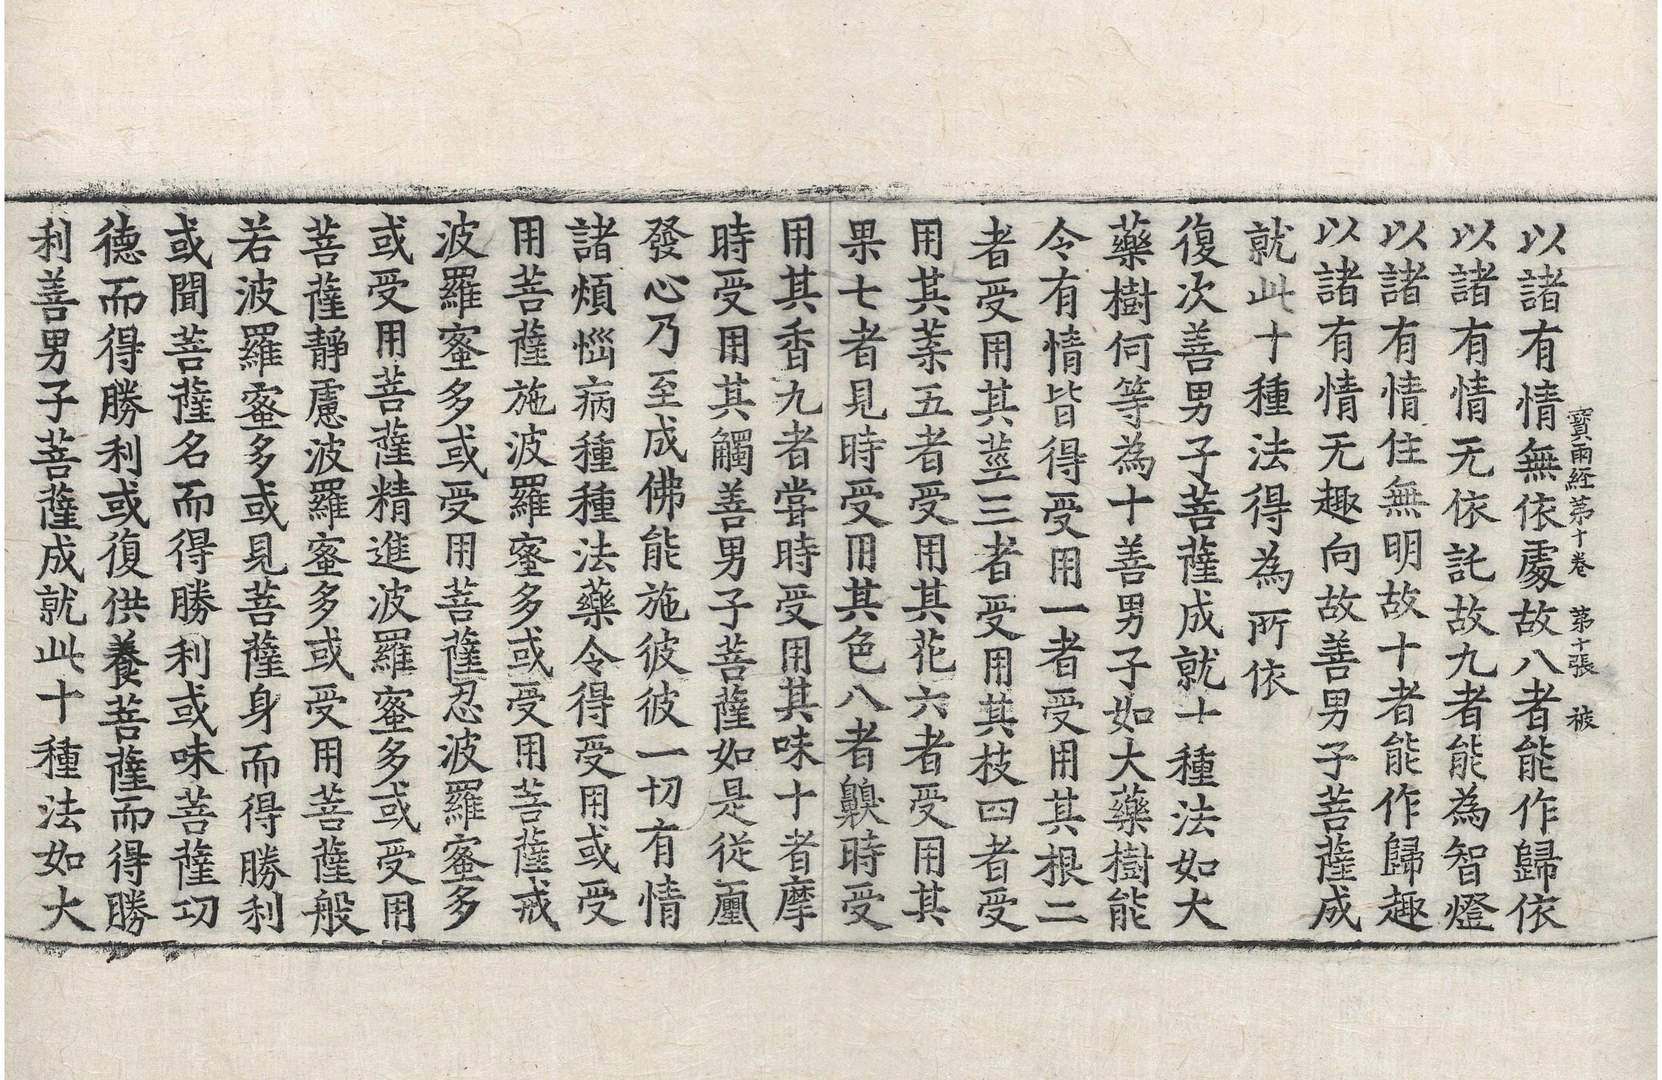 寶雨經第十卷　第十張　被
以諸有情無依處故八者能作歸依
以諸有情无依託故九者能為智燈
以諸有情住無明故十者能作歸趣
以諸有情无趣向故善男子菩薩成
就此十種法得為所依
復次善男子菩薩成就十種法如大
藥樹何等為十善男子如大藥樹能
令有情皆得受用一者受用其根二
者受用其莖三者受用其枝四者受
用其葉五者受用其花六者受用其
果七者見時受用其色八者齅時受
用其香九者甞時受用其味十者摩
時受用其觸善男子菩薩如是從初
發心乃至成佛能施彼彼一切有情
諸煩惱病種種法藥令得受用或受
用菩薩施波羅蜜多或受用菩薩戒
波羅蜜多或受用菩薩忍波羅蜜多
或受用菩薩精進波羅蜜多或受用
菩薩靜慮波羅蜜多或受用菩薩般
若波羅蜜多或見菩薩身而得勝利
或聞菩薩名而得勝利或味菩薩功
德而得勝利或復供養菩薩而得勝
利善男子菩薩成就此十種法如大